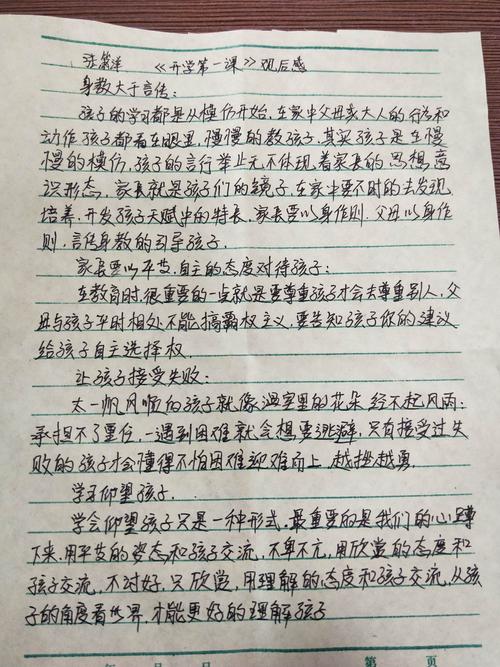 张 洋 《开学第一课》观后感
身教大于言传：
孩子的学习都是从模仿开始，在家中父母亲大人的行为和
动作孩子都看在眼里，慢慢的教孩子，其实孩子是在慢
慢的模仿，孩子的言行举止无不体现着家长的思想，意
识形态，家长就是孩子们的镜子，在家中要不时的去发现，
培养，开发孩子天赋中的特长，家长要以身作则，父母以身作
则，言传身教的引导孩子。
家长要以平等，自主的态度对待孩子：
在教育时，很重要的一点就是要尊重孩子才会去尊重别人，父
母与孩子平时相处不能搞霸权主义，要告知孩子你的建议
给孩子自主选择权。
让孩子接受失败：
太一帆风顺的孩子就像温室里的花朵经不起风雨；
承担不了重任，一遇到困难就会想要逃避，只有接受过失
败的孩子才会懂得不怕困难迎难而上，越挫越勇。
学习仰望孩子，
学会仰望孩子只是一种形式，最重要的是我们的心蹲
下来，用平等的姿态和孩子交流，不卑不亢，用欣赏的态度和
孩子交流，不讨好，只欣赏，用理解的态度和孩子交流，从孩
子的角度看世界，才能更好的理解孩子
年 月 日 第 页